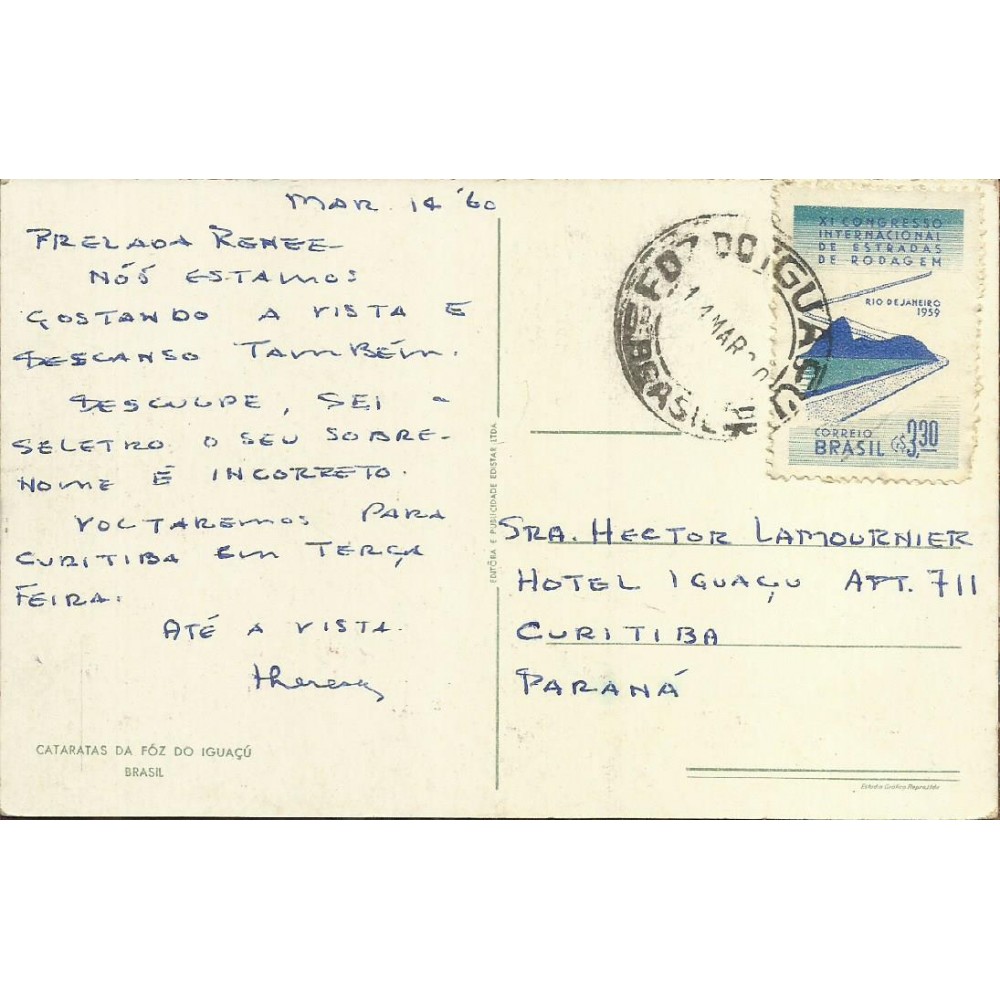 MAR. 14 '60
PRELADA RENEE—
NÓS ESTAMOS
GOSTANDO A VISTA E
DESCANSO TAMBÉM.
DESCULPE, SEI A
SELETRO O SEU SOBRE-
NOME É INCORRETO.
VOLTAREMOS PARA
CURITIBA EM TERÇA
FEIRA.
ATÉ A VISTA.
Theresa
CATARATAS DA FÓZ DO IGUAÇÚ
BRASIL
EDITÔRA E PUBLICIDADE EDISTAR LTDA.
FOZ DO IGUAÇU
14 MAR
BRASIL
XI CONGRESSO
INTERNACIONAL
DE ESTRADAS
DE RODAGEM
RIO DE JANEIRO
1959
CORREIO
BRASIL C$ 3,30
SRA. HECTOR LAMOURNIER
HOTEL IGUAÇU APT. 711
CURITIBA
PARANÁ